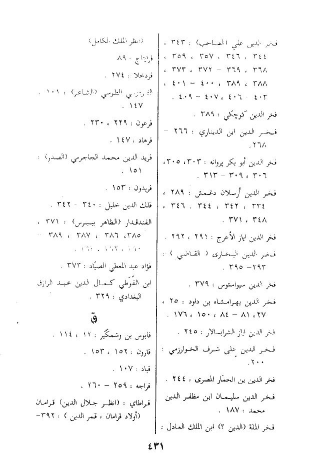 فخر الدين علي (الصاحب) : ٣٤٣ ،
٣٤٤ ، ٣٤٦ ، ٣٥٧ ، ٣٥٩ ،
٣٦٨ ، ٣٦٩ – ٣٧٢ ، ٣٧٣ ،
٣٨٨ ، ٣٨٩ ، ٤٠٠ – ٤٠١ ،
٤٠٣ ، ٤٠٦ ، ٤٠٧ – ٤٠٩ .
فخر الدين كوچكي : ٣٨٩ .
فخر الدين ابن الديناري : ٢٦٦ –
٢٦٨ .
فخر الدين أبو بكر پروانه : ٣٠٣، ٣٠٥،
٣٠٦ ، ٣٠٩ – ٣١٣ .
فخر الدين أرسلان دغمش : ٢٨٩ ،
٣٣٤ ، ٣٤٢ ، ٣٤٤ ، ٣٤٦ ،
٣٤٨ ، ٣٧١ .
فخر الدين اياز الأعرج : ٢٩١ ، ٢٩٢ .
فخر الدين البخاري ( القاضي ) :
٢٩٣ – ٣٩٥ .
فخر الدين سيواستوس : ٣٧٩ .
فخر الدين بهرامشاه بن داود : ٢٥ ،
٢٧، ٨١ – ٨٤ ، ١٥٠ ، ١٧٦ .
فخر الدين اياز الشرابسالار : ٢٤٥ .
فخر الدين علي شرف الخوارزمي :
٢٠٠ .
فخر الدين بن الحمار المصرى : ٢٤٤ .
فخر الدين سليمان ابن مظفر الدين
محمد : ١٨٧ .
فخر الملة (الدين ؟) ابن الملك العادل :
(انظر الملك الكامل)
فراتاج : ٨٩ .
فردخلا : ٢٧٤ .
الفردوسي الطوسي (الشاعر) : ١٠٩ ،
١٤٧ .
فرعون : ٢٢٩ ، ٢٣٠ .
فرهاد : ١٤٧ .
فريد الدين محمد الجاجرمي (الصدر) :
١٥١ .
فريدون : ١٥٣ .
فلك الدين خليل : ٣٤٠ – ٣٤٢ .
الفندقدار (الظاهر بيبرس) : ٣٧١ ،
٣٨٥، ٣٨٦ ، ٣٨٧ ، ٣٨٩ –
فؤاد عبد المعطي الصياد : ٣٧٣ .
ابن الفوطي كمال الدين عبد الرازق
البغدادي : ٣٢٩ .
ق
قابوس بن وشمگير : ١١ ، ١١٤ .
قارون : ١٥٢ ، ١٥٣ .
قباد : ١٠٧ .
قراجه : ٢٥٩ – ٢٦٠ .
قراطاي : (انظر جلال الدين)
(أولاد قرامان ، قمر الدين) : ٣٩٢–
٤٣١